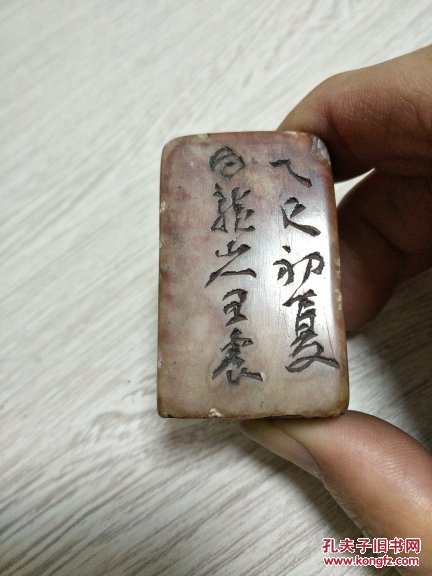 乙巳初夏
白龍山人王震
孔夫子旧书网
www.kongfz.com